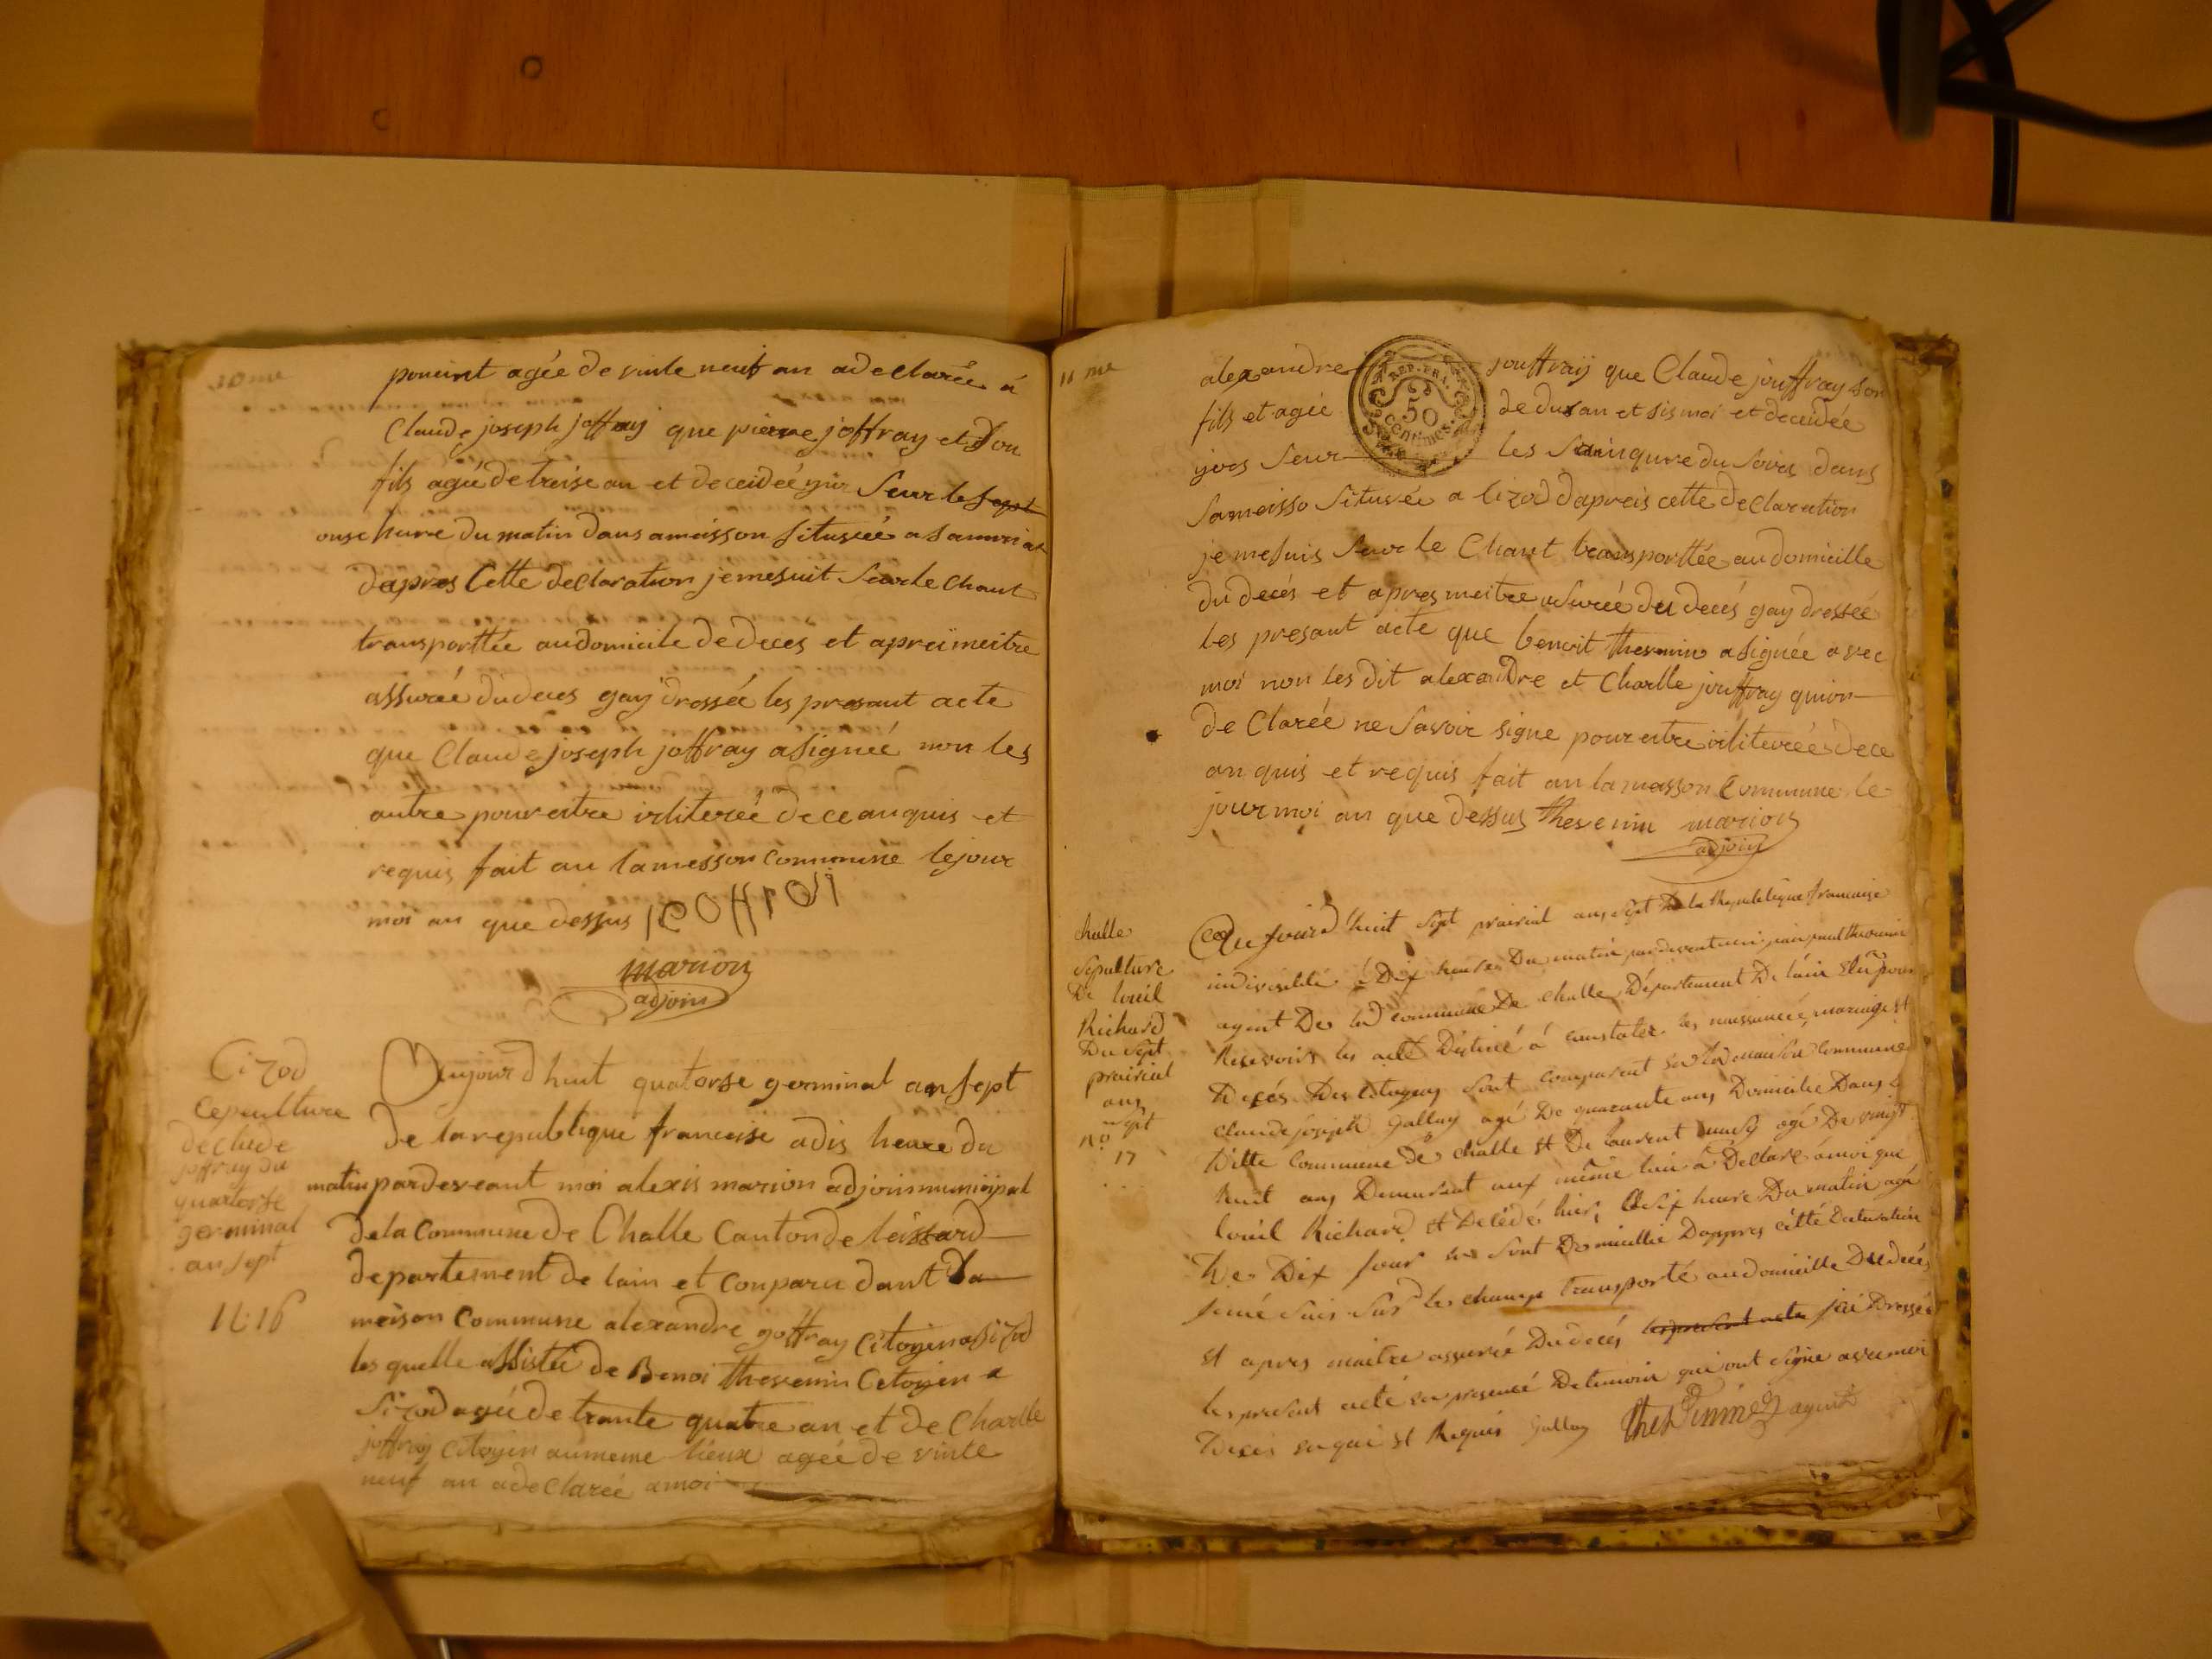 10 me
ponint agée de vinte neuf an adeclarée á
Claude joseph joffray que pierre joffray et Son
fils agée de treise an et deceidée yür Seur le sept
onse hure du matin dans a maisson situsiéé a
dapres Cette declaration je me suit Seur le Chant
transporttée au domicile de deces et apreï meitre
assuréé du deces gay dressée les presant acte
que Claude joseph joffray asignéé non les
autre pour eitre ïrliteréé de ce an quis et
requis fait an la messon commune le jour
moi an que dessus
marion
adjoin
Cizod
Cepulture
de Clude
joffray du
quartorse
germinal
an sept
N: 16
Aujourdhuit quatorse germinal an sept
de la republique franceise a dis heure du
matin par deveant moi alexis marion adjoin municipal
de la Commune de Challe Canton de leissard
departement de lain et Conparu dant La
meison Commune alexandre goffray Citoyen a Sizod
les quelle assistéé de Benoi thevenin Citoyen a
Sizod agéé de trante quatre an et de Charlle
joffray Citoyen au meme lieux agéé de vinte
neuf an adeClaréé a moi
11 me
alexandre jouffraÿ que Claude jouffray son
fils et agéé de dux an et sis moi et deceidée
yors Seur les Sainq ure du soirs dans
sa meisso situséé a Cizod dapreis cette deClaration
je me suis Seur le Chant transporttée au domicille
du decés et apres meitre asuréé du decés gay dresséé
les presant acte que benoit thevenin a signée avec
moi non les dit alexandre et Charlle jouffray qui on
de Claréé ne savoir signe pour eitre ïrliteréé de ce
an quis et requis fait an la maisson Commune le
jour moi an que dessus thevenin marion
adjoin
REP. FRA.
50
centimes.
challe
Sepulture
De louil
Richard
Du sept
prairial
ans
sept
No
17
Aujourd huit sept prairial ans sept De la Republique francaise
indivisible á Dix heures Du matin par devent moi jean paul thevenin
agent De la commune De Challe Département De lain Elu pour
Recevoirs les acte Distiné á constater les naissancéé, mariage et
Decés Des citoyens sont comparent sur la maison Commune
claude joseph Gallay agé De quarante ans Domicilie Dans la
Ditte Commune De challe et De laurent agé De vingt
huit ans Demeurant aux même lieu á Déclaré á moi que
louil Richard et Décédé hier, á six heure Du matin agé
De Dix jour sont Domicillié Dappres cétté Declaration
je mé suis sur les champs transporté au domicille Du decés
et apres maitre assuréé Du decés les present acte jai Dressée
les present acté en presencé De temoin qui ont signe avec moi
De ce en qui et Requis Gallay thevenin agent